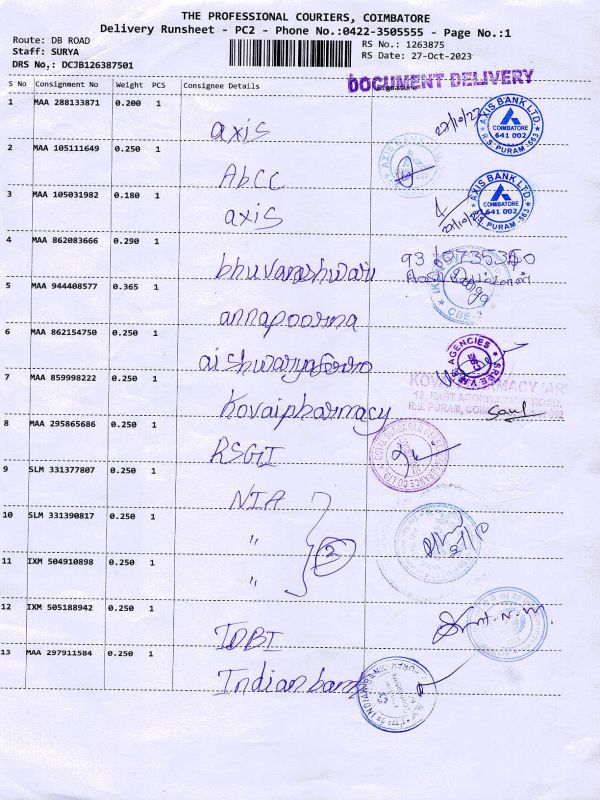 THE PROFESSIONAL COURIERS, COIMBATORE
Delivery Runsheet - PC2 - Phone No.:0422-3505555 - Page No.:1
Route: DB ROAD
RS No.: 1263875
Staff: SURYA
RS Date: 27-Oct-2023
DRS No.: DCJB126387501
DOCUMENT DELIVERY
S No Consignment No Weight PCS Consignee Details Signature
1 MAA 288133871 0.200 1 axis 27/10/23
AXIS BANK LTD. COIMBATORE 641 002 R.S. PURAM-563
2 MAA 105111649 0.250 1 AbCC
3 MAA 105031982 0.180 1 axis 27/10/23
AXIS BANK LTD. COIMBATORE 641 002 R.S. PURAM-563
4 MAA 862083666 0.290 1 bhuvaneshwari
5 MAA 944408577 0.365 1 annapoorna
6 MAA 862154750 0.250 1
AGENCIES
7 MAA 859998222 0.250 1 Kovaipharmacy
KOVAI PHARMACY
R.S. PURAM,
8 MAA 295865686 0.250 1 RSGI
9 SLM 331377807 0.250 1 NIA
10 SLM 331390817 0.250 1 "
2
11 IXM 504910898 0.250 1 "
12 IXM 505188942 0.250 1 IDBI
13 MAA 297911584 0.250 1 Indianbank